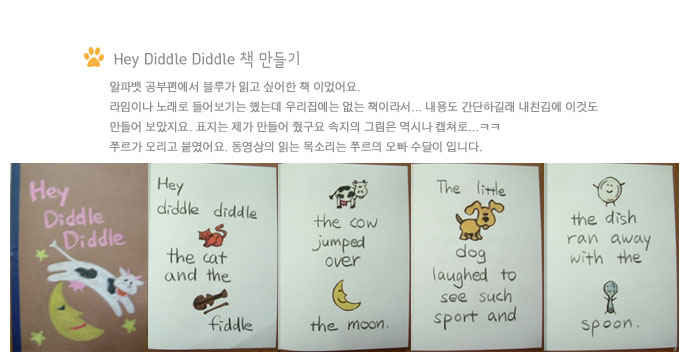 Hey Diddle Diddle 책 만들기
알파벳 공부편에서 블루가 읽고 싶어한 책 이었어요.
라임이나 노래로 들어보기는 했는데 우리집에는 없는 책이라서... 내용도 간단하길래 내친김에 이것도
만들어 보았지요. 표지는 제가 만들어 줬구요 속지의 그림은 역시나 캡쳐로...ㅋㅋ
쭈르가 오리고 붙였어요. 동영상의 읽는 목소리는 쭈르의 오빠 수달이 입니다.
Hey
Diddle
Diddle
Hey
diddle diddle
the cat
and the
fiddle
the cow
jumped
over
the moon.
The little
dog
laughed to
see such
sport and
the dish
ran away
with the
spoon.